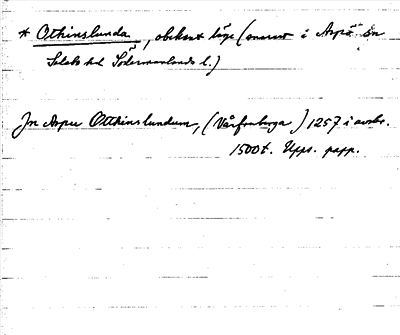 * Othinslunda, obekant läge (numer i Aspö sn
Selebo hd Södermanlands l.)
In Aspu Otthinslundum, (Vårfruberga) 1257 i avskr.
1500t. Upps. papp.